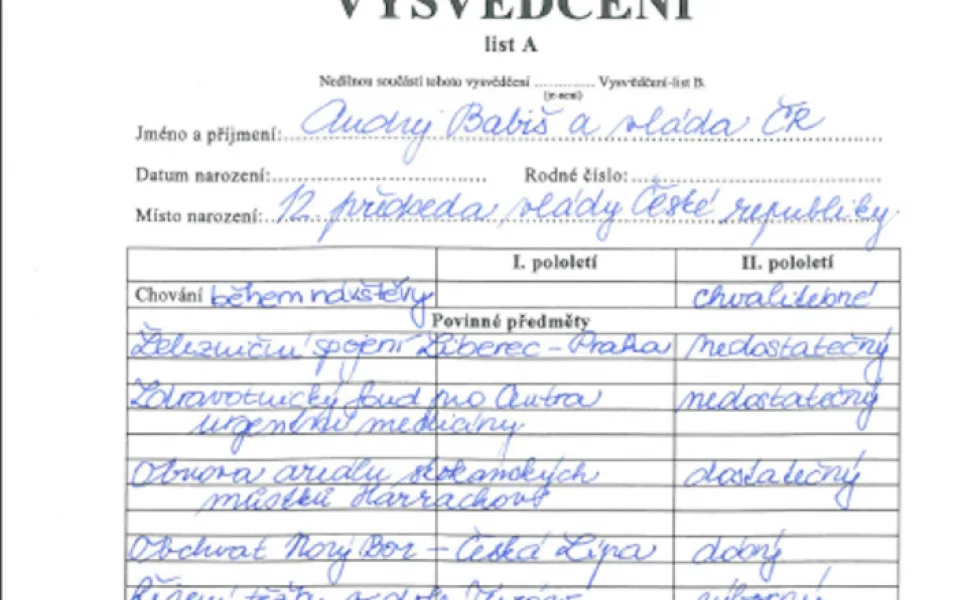 VYSVĚDČENÍ
list A
Nedílnou součástí tohoto vysvědčení ............ Vysvědčení-list B.
(je-není)
Jméno a příjmení: Andrej Babiš a vláda ČR
Datum narození: Rodné číslo:
Místo narození: 12. předseda vlády České republiky
I. pololetí II. pololetí
Chování během návštěvy chvalitebné
Povinné předměty
Železniční spojení Liberec – Praha nedostatečný
Zdravotnický fond pro Centra nedostatečný
urgentní medicíny
Obnova areálu skokanských dostatečný
můstků Harrachově
Obchvat Nový Bor – Česká Lípa dobrý
Řešení těžby v dole Turów výborný